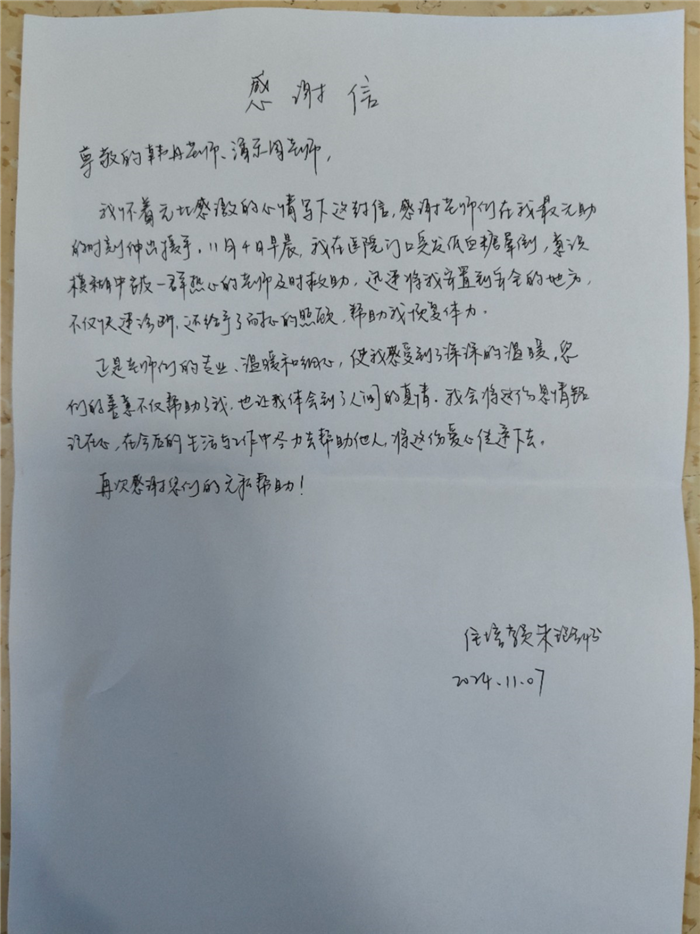 感谢信
尊敬的韩丹老师、老师,
我怀着无比感激的心情写下这封信,感谢老师们在我最无助
的时刻伸出援手。11月4日早晨,我在医院门口突发低血糖晕倒,意识
模糊中被一群热心的老师及时救助,迅速将我安置到安全的地方,
不仅快速诊断,还给予了的照顾,帮助我恢复体力。
正是老师们的专业、温暖和细心,使我感受到了深深的温暖,您
们的善意不仅帮助了我,也让我体会到了人间的真情。我会将这份恩情铭
记在心,在今后的生活与工作中尽力去帮助他人,将这份爱心传递下去。
再次感谢您们的无私帮助!
住培学员朱
2024.11.07